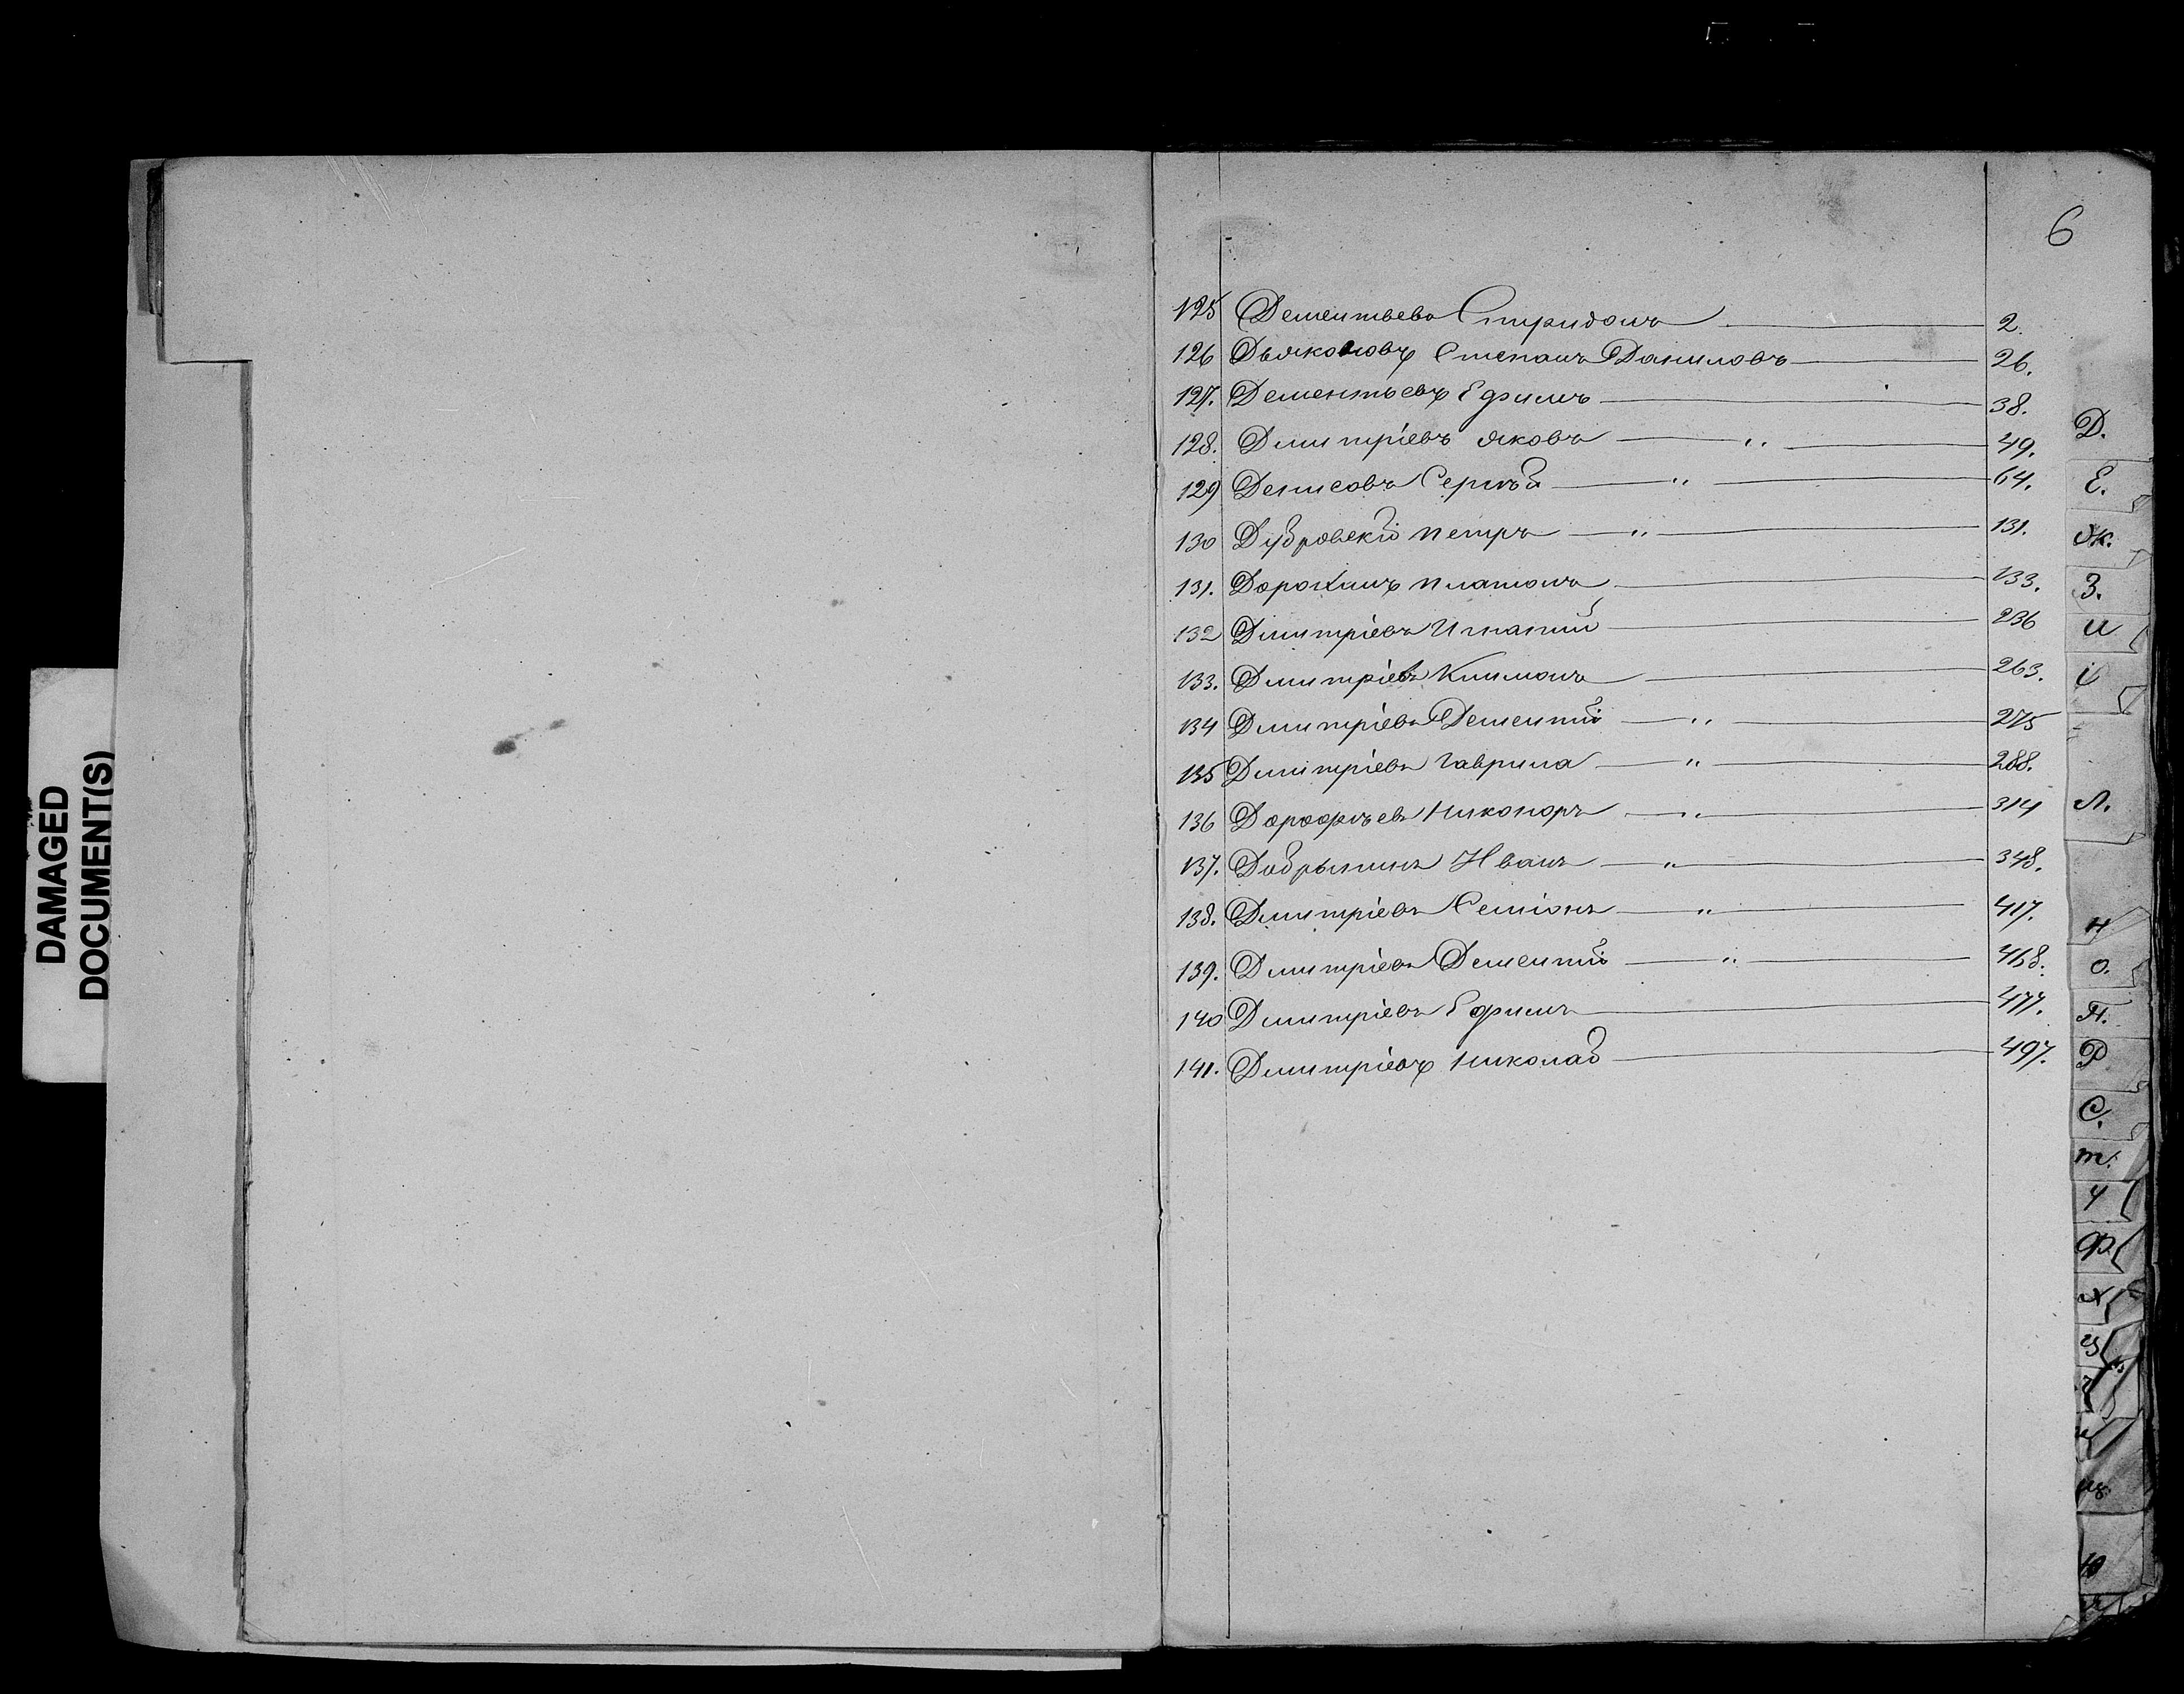 DAMAGED
DOCUMENT(S)
6
125 Дементьевъ Спиридонъ 2.
126 Дьяконовъ Степанъ Даниловъ 26.
127. Дементьевъ Ефимъ 38.
128. Дмитріевъ Яковъ „ 49.
129 Денисовъ Сергѣй „ 64.
130 Дубровскій Петръ „ 131.
131. Дорохинъ Платонъ 133.
132 Дмитріевъ Игнатій 236
133. Дмитріевъ Климонъ 263.
134 Дмитріевъ Дементій „ 275
135 Дмитріевъ Гаврила „ 288.
136 Дорофѣевъ Никоноръ „ 314
137. Добрынинъ Иванъ „ 348.
138. Дмитріевъ Семіонъ „ 417.
139. Дмитріевъ Дементій „ 468.
140 Дмитріевъ Ефимъ 477.
141. Дмитріевъ Николай 497.
Д.
Е.
Ж.
З.
И
І
Л.
Н
О.
П.
Р
С.
Т.
У
Ф.
Х
Ц
Ю